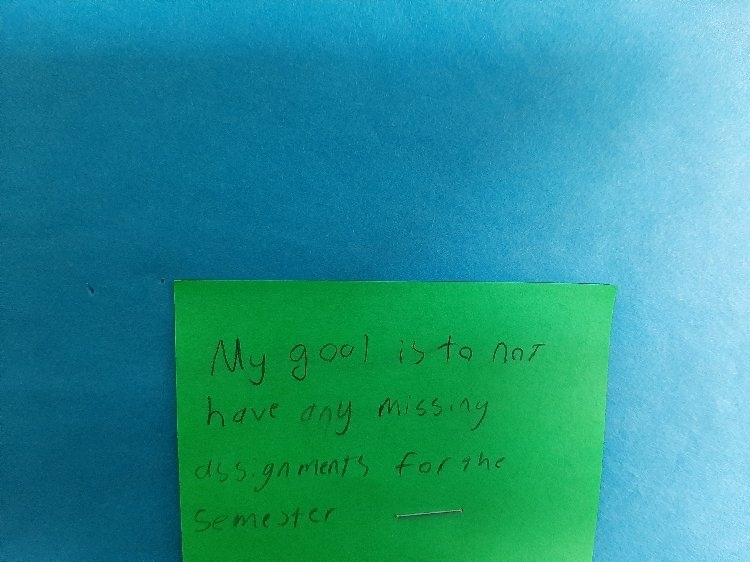 My goal is to not
have any missing
assignments for the
semester